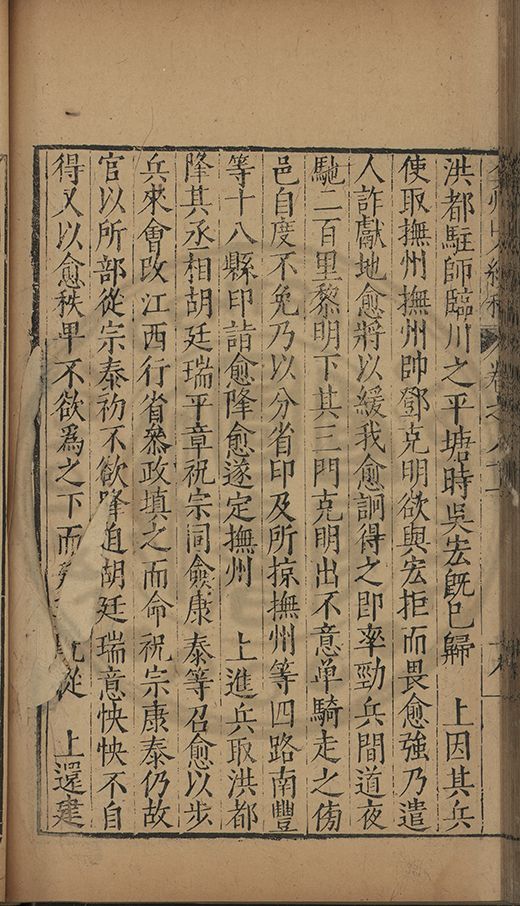 洪都駐師臨川之平塘時吳宏旣已歸　上因其兵
使取撫州撫州帥鄧克明欲與宏拒而畏愈強乃遣
人詐獻地愈將以緩我愈詗得之即率勁兵間道夜
馳二百里黎明下其三門克明出不意单騎走之傍
邑自度不免乃以分省印及所掠撫州等四路南豐
等十八縣印詣愈降愈遂定撫州　上進兵取洪都
降其丞相胡廷瑞平章祝宗同僉康泰等召愈以步
兵來會改江西行省叅政填之而命祝宗康泰仍故
官以所部從宗泰初不欲降迫胡廷瑞意怏怏不自
得又以愈秩卑不欲爲之下而從　上還建